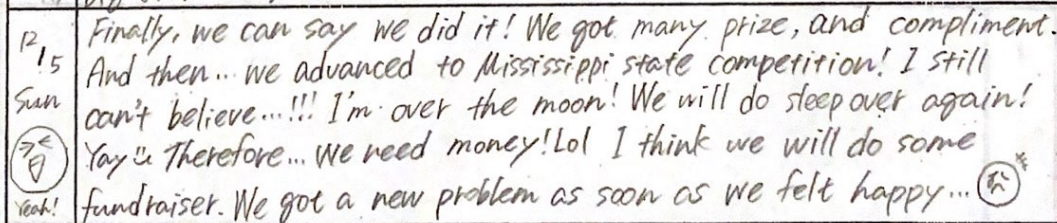 12/5
Sun
Yeah!
Finally, we can say we did it! We got many prize, and compliment.
And then... we advanced to Mississippi state competition! I still
can't believe...!!! I'm over the moon! We will do sleep over again!
Yay Therefore... We need money! Lol I think we will do some
fundraiser. We got a new problem as soon as we felt happy...